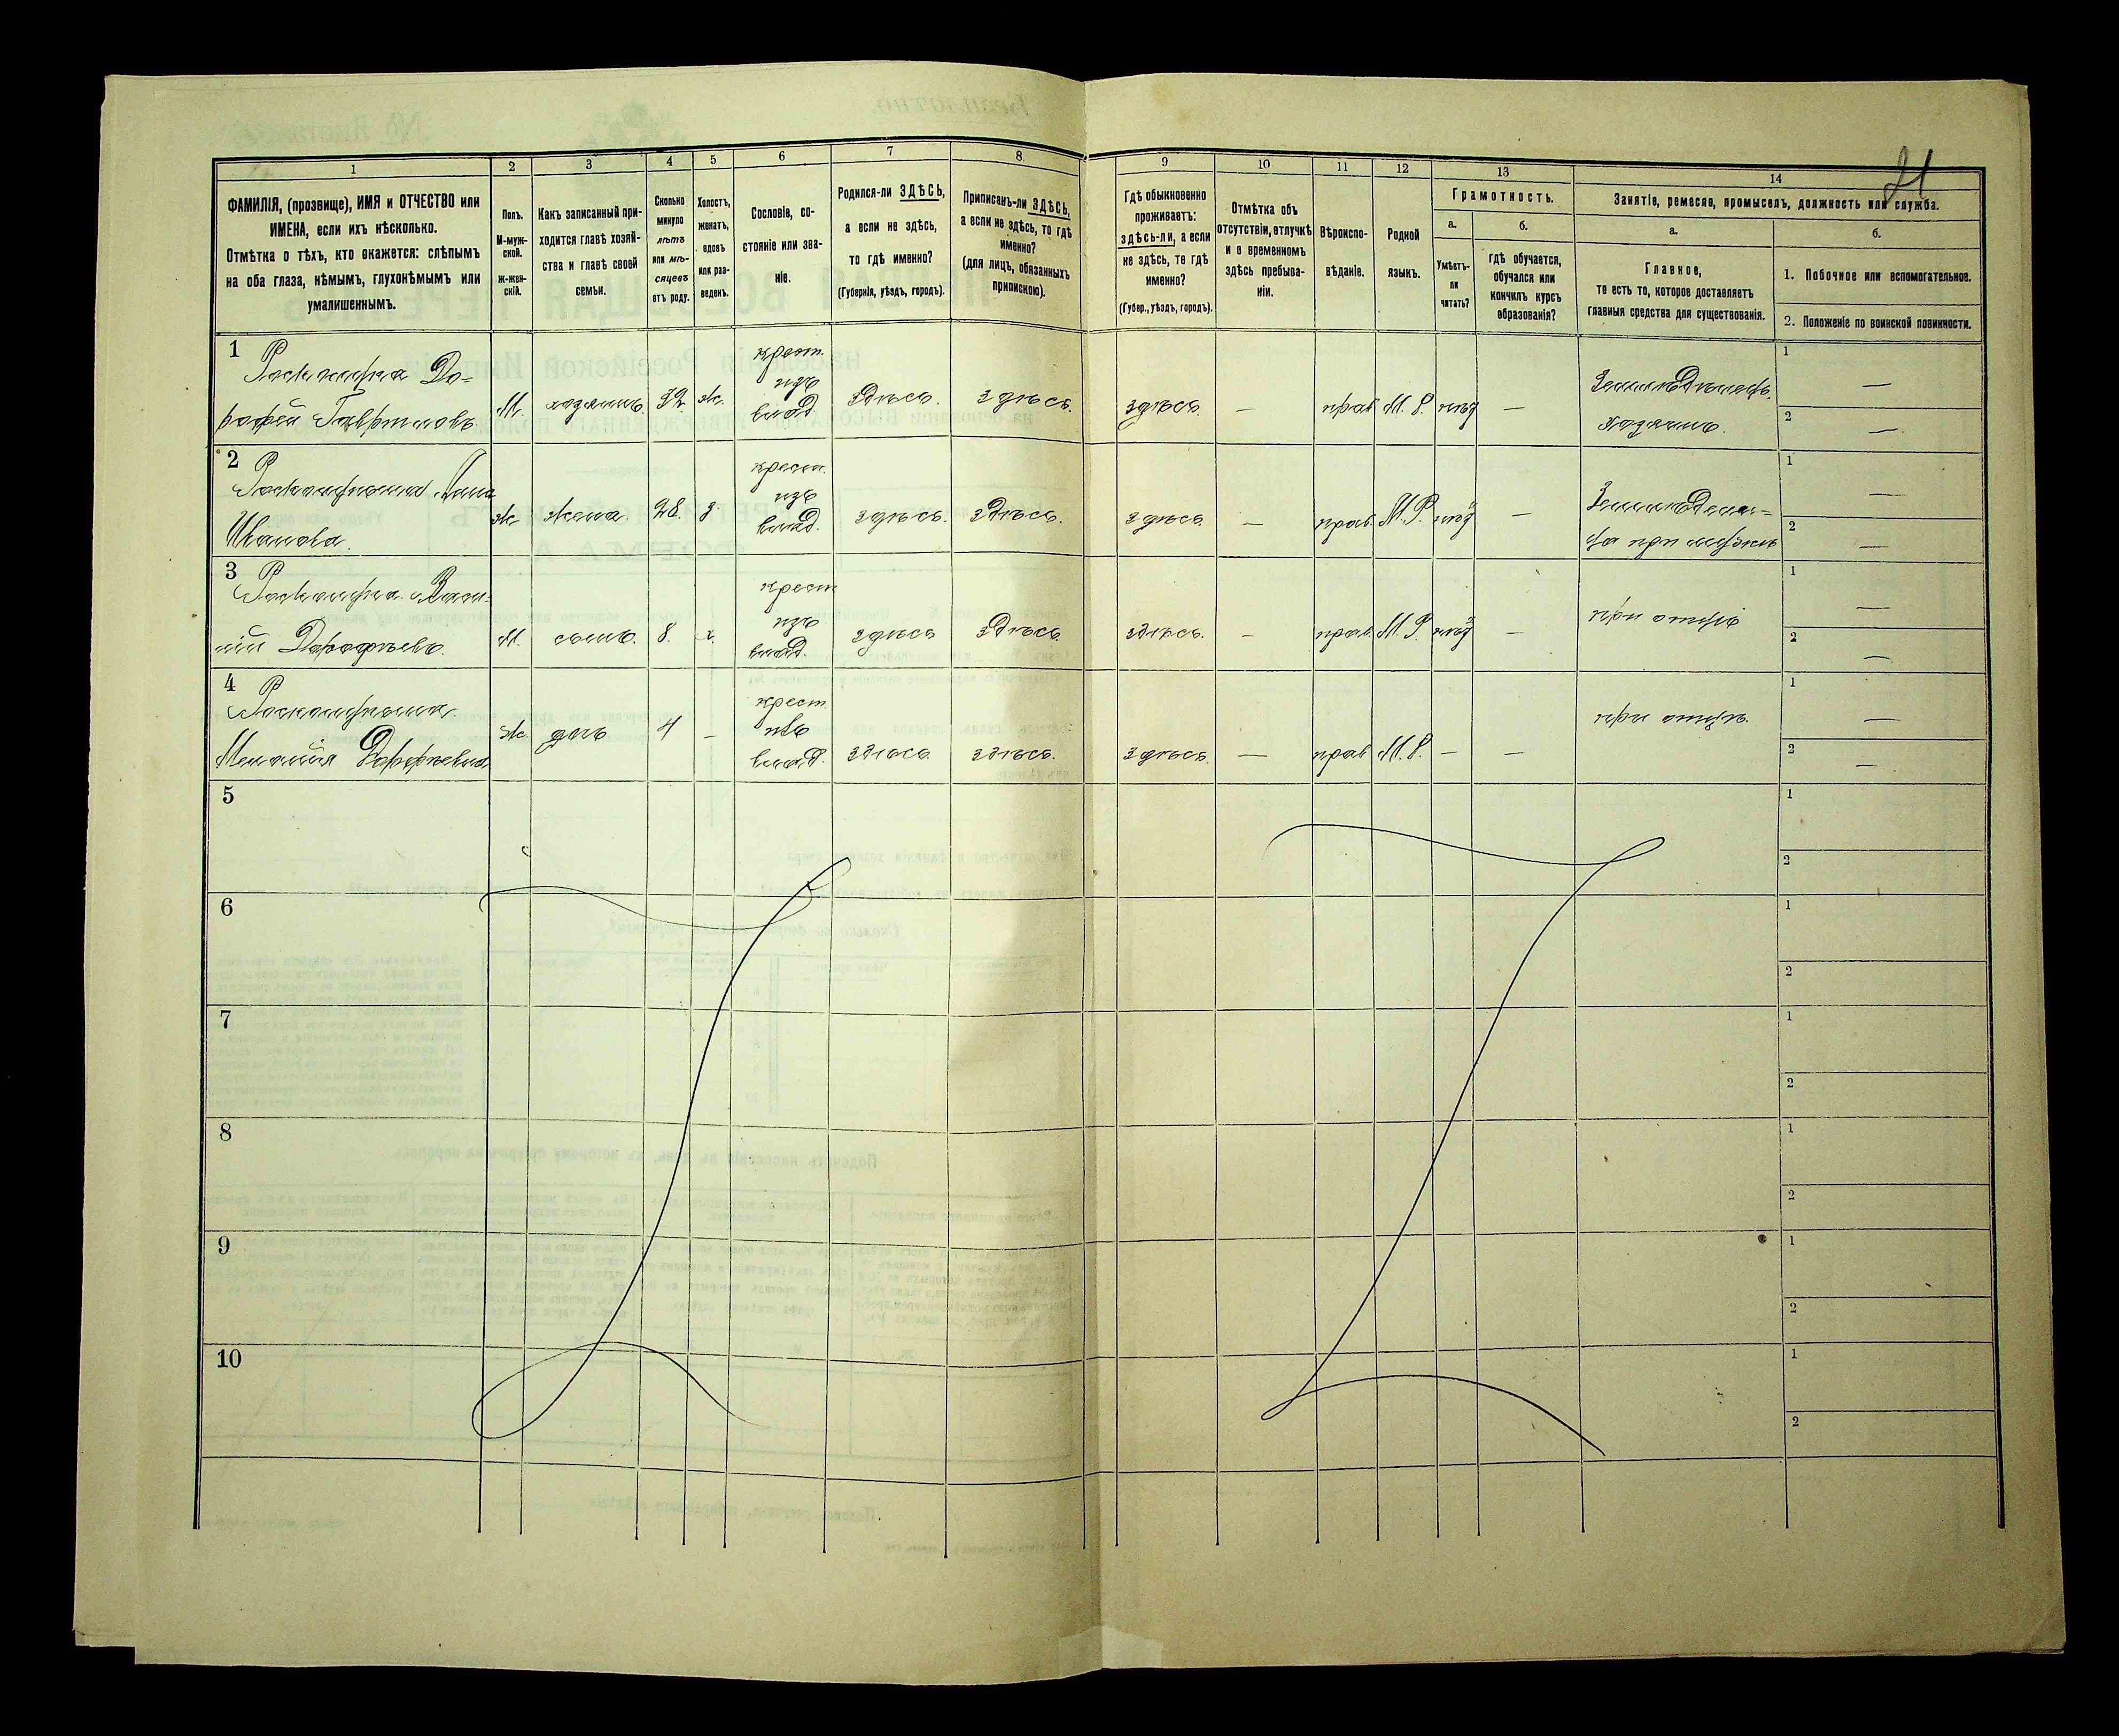 21
1
2
3
4
5
6
7
8
9
10
11
12
13
14
ФАМИЛІЯ, (прозвище), ИМЯ и ОТЧЕСТВО или
ИМЕНА, если ихъ нѣсколько.
Отмѣтка о тѣхъ, кто окажется: слѣпымъ
на оба глаза, нѣмымъ, глухонѣмымъ или
умалишеннымъ.
Полъ.
М-муж-
ской.
Ж-жен-
скій.
Какъ записанный при-
ходится главѣ хозяй-
ства и главѣ своей
семьи.
Сколько
минуло
лѣтъ
или мѣ-
сяцевъ
отъ роду.
Холостъ,
женатъ,
вдовъ
или раз-
веденъ.
Сословіе, со-
стояніе или зва-
ніе.
Родился-ли ЗДѢСЬ,
а если не здѣсь,
то гдѣ именно?
(Губернія, уѣздъ, городъ).
Приписанъ-ли ЗДѢСЬ,
а если не здѣсь, то гдѣ
именно?
(для лицъ, обязанныхъ
припискою).
Гдѣ обыкновенно
проживаетъ:
здѣсь-ли, а если
не здѣсь, то гдѣ
именно?
(Губер., уѣздъ, городъ).
Отмѣтка объ
отсутствіи, отлучкѣ
и о временномъ
здѣсь пребыва-
ніи.
Вѣроиспо-
вѣданіе.
Родной
языкъ.
Грамотность.
а.
Умѣетъ-
ли
читать?
б.
гдѣ обучается,
обучался или
кончилъ курсъ
образованія?
Занятіе, ремесло, промыселъ, должность или служба.
а.
Главное,
то есть то, которое доставляетъ
главныя средства для существованія.
б.
1. Побочное или вспомогательное.
2. Положеніе по воинской повинности.
1
До-
рофей Гавриловъ
М.
хозяинъ
32
ж.
крест.
изъ
влад.
здѣсь.
здѣсь.
здѣсь
—
прав.
М. Р.
нѣт
—
Земледѣлецъ.
хозяинъ.
1 —
2 —
2
Анна
Иванова.
ж
жена.
28.
з.
крест.
изъ
влад.
здѣсь.
здѣсь.
здѣсь
—
прав.
М. Р.
нѣт
—
Земледѣли-
ца при мужѣ
1 —
2 —
3
Дорофѣевъ.
М.
сынъ.
8.
х.
крест
изъ
влад.
здѣсь
здѣсь.
здѣсь.
—
прав.
М. Р.
нѣт
—
при отцѣ
1 —
2 —
4
Меланія
ж.
дочь
4
—
крест.
изъ
влад.
здѣсь
здѣсь.
здѣсь.
—
прав
М. Р.
—
—
при отцѣ.
1 —
2 —
5
1
2
6
1
2
7
1
2
8
1
2
9
1
2
10
1
2